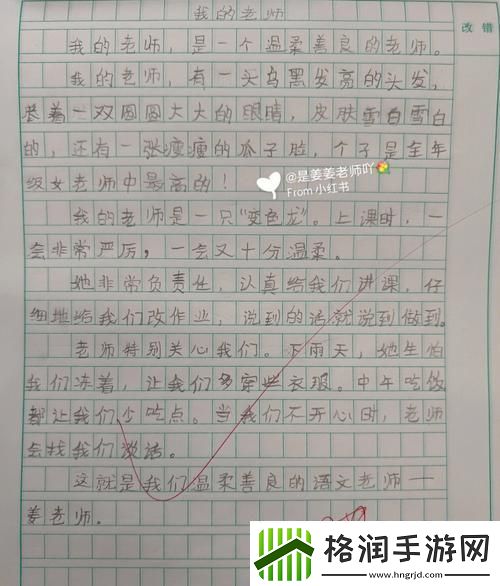 我的老师
改错
我的老师，是一个温柔善良的老师。
我的老师，有一头乌黑发亮的头发，
长着一双圆圆大大的眼睛，皮肤雪白雪白
的，还有一张瘦瘦的瓜子脸，个子是全年
级女老师中最高的！
@是姜姜老师吖
From 小红书
我的老师是一只“变色龙”。上课时，一
会非常严厉，一会又十分温柔。
她非常负责任，认真给我们讲课，仔
细地给我们改作业，说到的话就说到做到。
老师特别关心我们。下雨天，她生怕
我们冻着，让我们多穿些衣服。中午吃饭
都让我们少吃点。当我们不开心时，老师
会找我们谈话。
这就是我们温柔善良的语文老师一
姜老师。
格润手游网
www.hngrjd.com